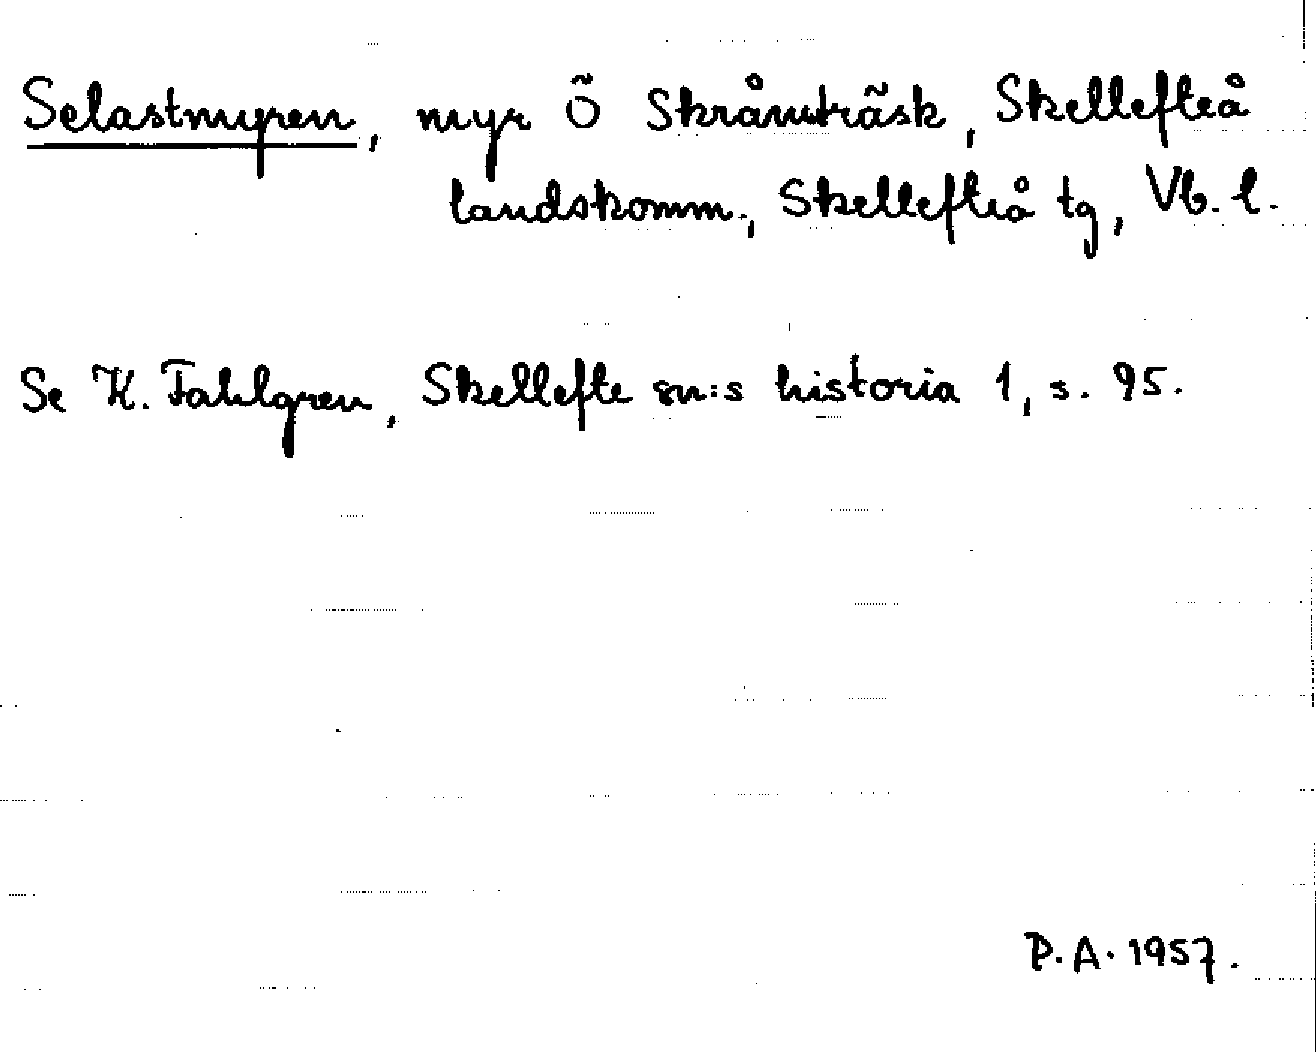 Selastmyren, myr Ö Skråmträsk, Skellefteå
landskomm., Skellefteå tg, Vb. l.
Se K. Fahlgren, Skellefte sn:s historia 1, s. 95.
P.A. 1957.